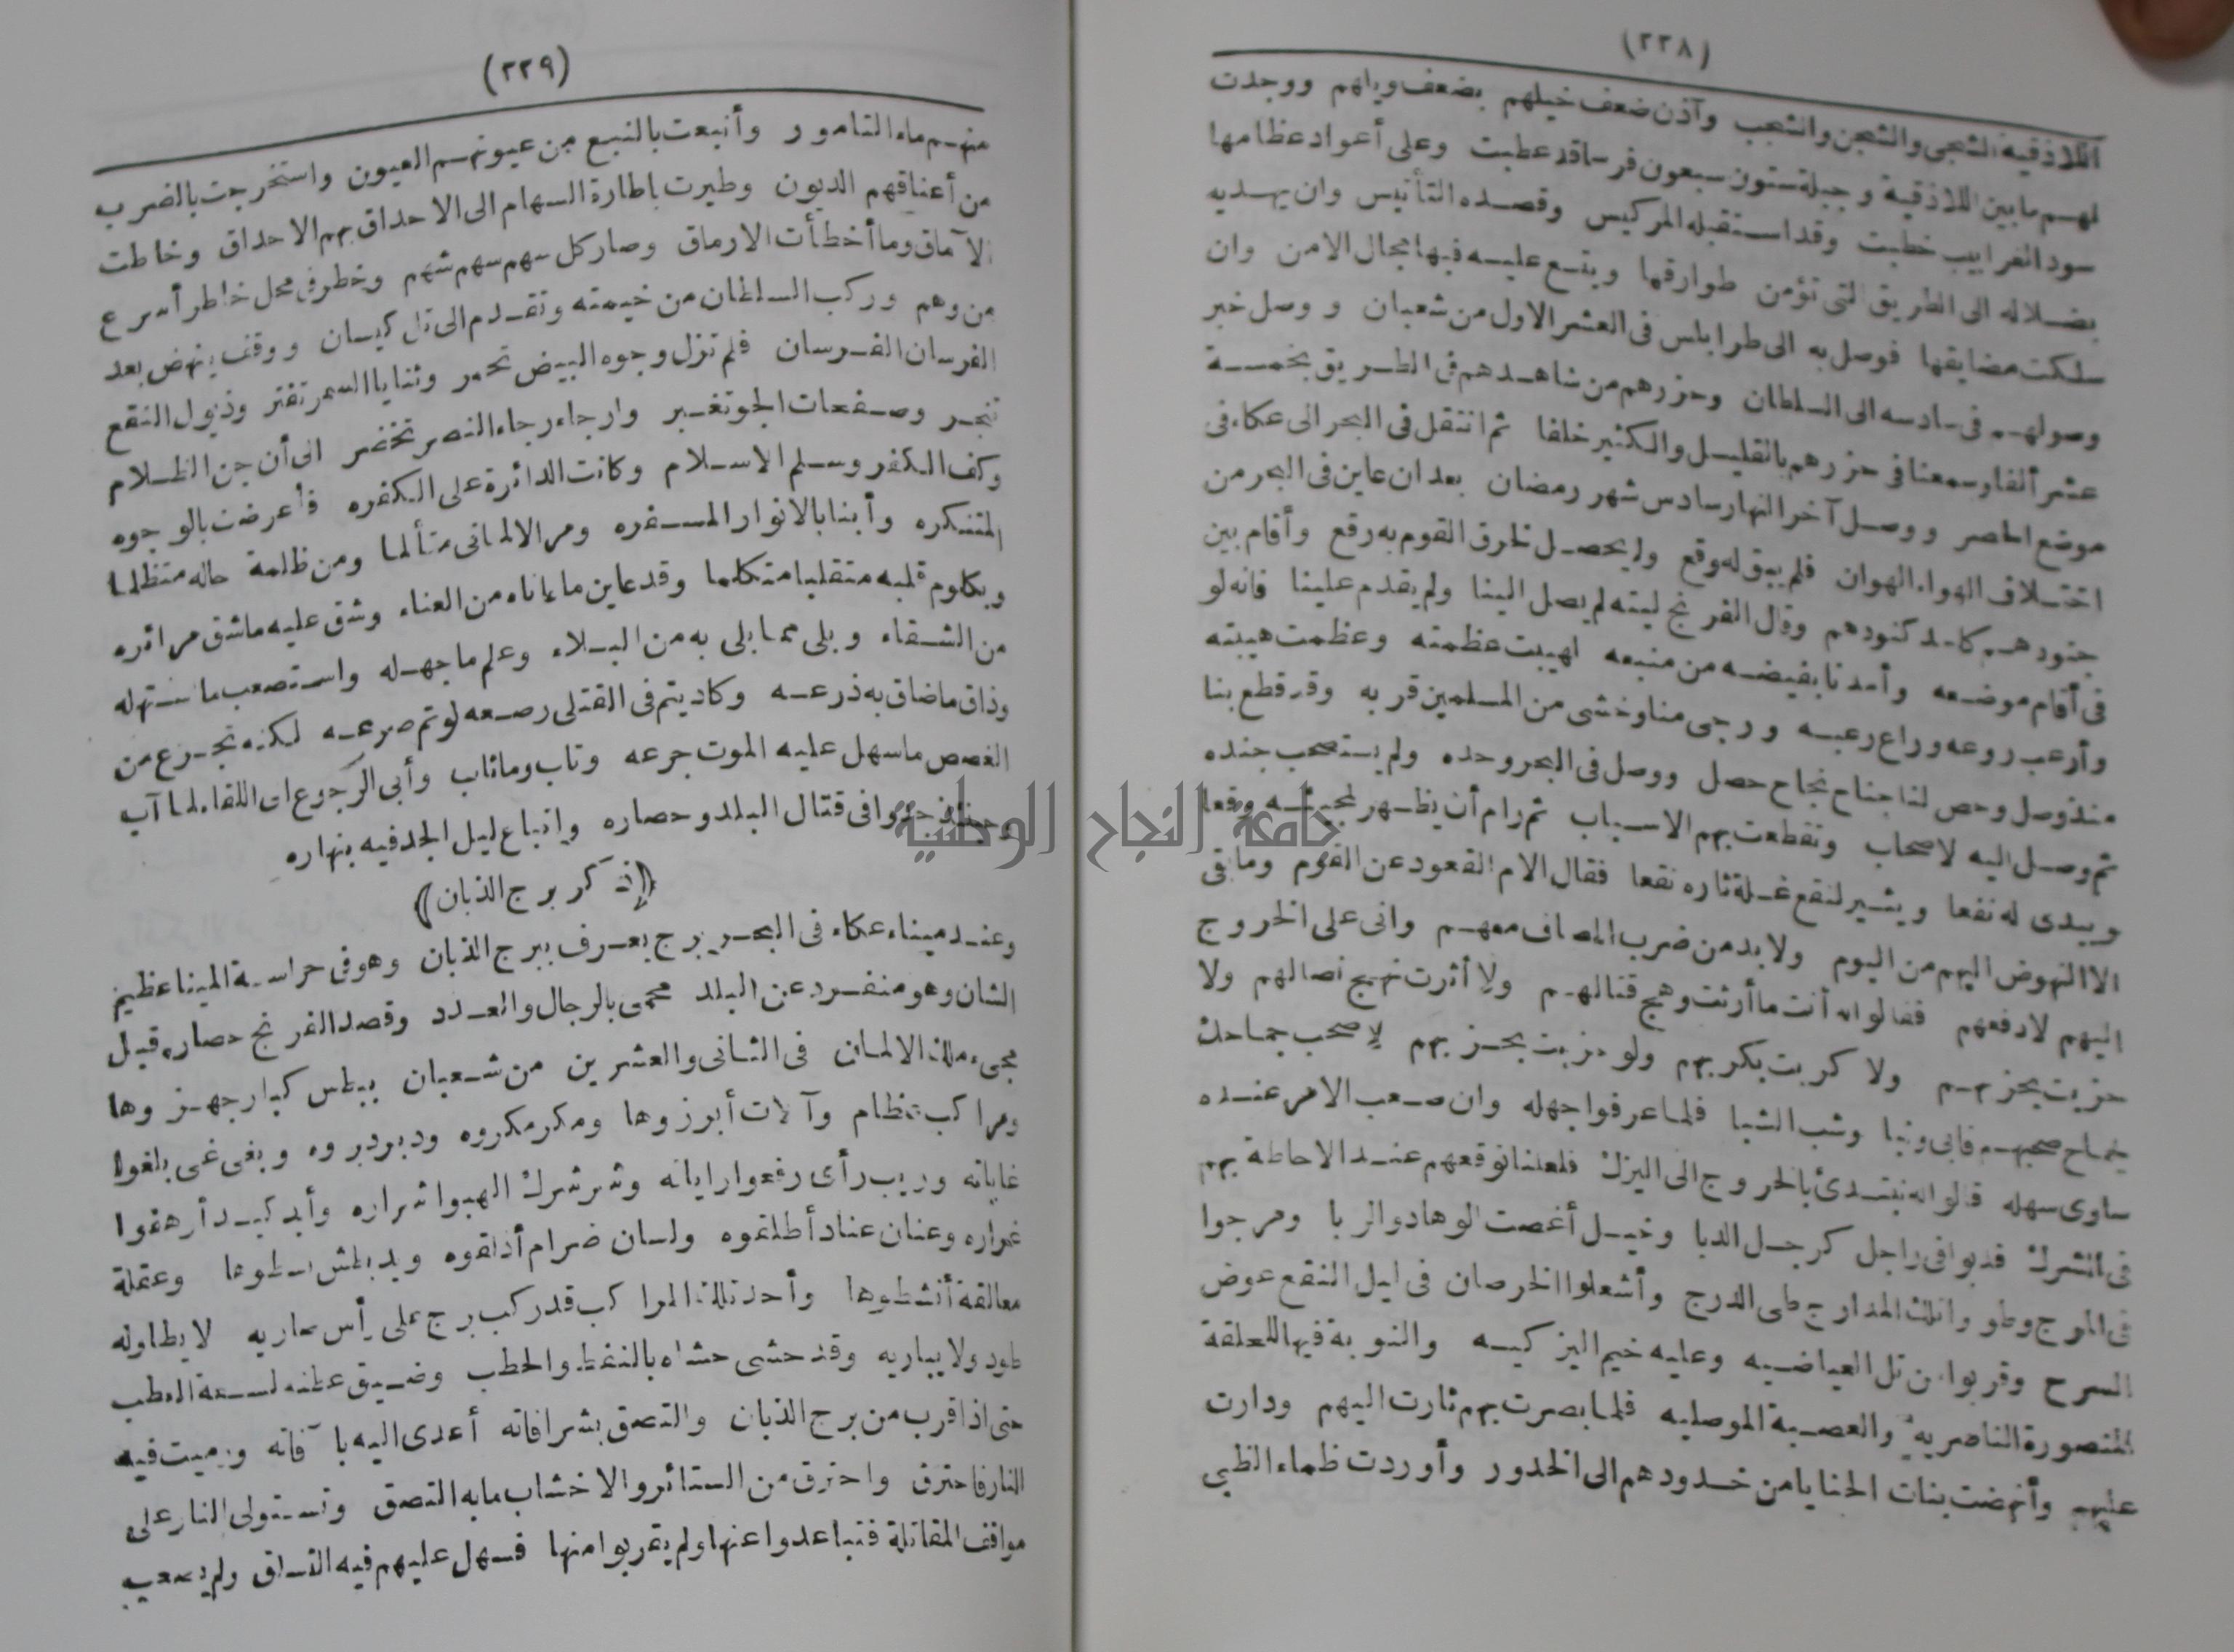 (٢٢٨)
اللاذقية الشجى والشجن والشجب وآذن ضعف خيلهم بضعف ويلهم ووجدت
لهم ما بين اللاذقية وجبلة ستون سبعون فرسا قد عطبت وعلى أعواد عظامها
سود الغرابيب خطبت وقد استقبله المركيس وقصده التأنيس وان يهديه
بضلاله الى الطريق التى تؤمن طوارقها ويتسع عليه فيها مجال الامن وان
سلكت مضايقها فوصل به الى طرابلس فى العشر الاول من شعبان ووصل خبر
وصولهم فى سادسه الى السلطان وحزرهم من شاهدهم فى الطريق بخمسة
عشر ألفا وسمعنا فى حزرهم بالقليل والكثير خلفا ثم انتقل فى البحر الى عكاء فى
موضع الحصر ووصل آخر النهار سادس شهر رمضان بعد ان عاين فى البحر من
اختلاف الهواء الهوان فلم يبق له وقع ولم يحصل لخرق القوم به رقع وأقام بين
جنودهم كاسد كنودهم وقال الفرنج ليته لم يصل الينا ولم يقدم علينا فانه لو
فى أقام موضعه وأمدنا بفيضه من منبعه لهيبت عظمته وعظمت هيبته
وأرعب روعه وراع رعبه ورجى منا وخشى من المسلمين قربه وقد قطع بنا
منذ وصل وحص لنا جناح نجاح حصل ووصل فى البحر وحده ولم يستصحب جنده
ثم وصل اليه لاصحاب وتقطعت بهم الاسباب ثم رام أن يظهر لمجيئه وقعا
ويبدى له نفعا ويثير لنقع غلة ثاره نقعا فقال الام القعود عن القوم وما بقى
الا النهوض اليهم من اليوم ولا بد من ضرب المصاف معهم وانى على الخروج
اليهم لادفعهم فقالوا له أنت ما أرثت وهج قتالهم ولا أثرت نهج نصالهم ولا
حزبت بحزبهم ولا كربت بكربهم ولو حزبت بحزبهم لاصحب جماحك
بجماح صحبهم فابى ونبا وشب الشبا فلما عرفوا جهله وان صعب الامر عنده
ساوى سهله قالوا له نبتدئ بالخروج الى اليزك فلعلنا نوقعهم عند الاحاطة بهم
فى الشرك فدبوا فى راجل كرجل الدبا وخيل أغصت الوهاد والربا ومرجوا
فى المرج وطووا تلك المدارج طى الدرج وأشعلوا الخرصان فى ليل النقع عوض
السرج وقربوا من تل العياضيه وعليه خيم اليزكيه والنوبة فيها للحلقة
المنصورة الناصرية والعصبة الموصليه فلما بصرت بهم ثارت اليهم ودارت
عليهم وأنهضت بنات الحنايا من خدودهم الى الخدور وأوردت ظماء الظبى
(٢٢٩)
منهم ماء التامور وأنبعت بالنبع من عيونهم العيون واستخرجت بالضرب
من أعناقهم الديون وطيرت باطارة السهام الى الاحداق بهم الاحداق وخاطت
الآماق وما أخطأت الارماق وصار كل سهم سهم شهم وخطر فى محل خاطر أسرع
من وهم وركب السلطان من خيمته وتقدم الى تل كيسان ووقف ينهض بعد
الفرسان الفرسان فلم تزل وجوه البيض تحمر وثنايا السمر تفتر وذيول النقع
تنجر وصفحات الجو تغبر وارجاء رجاء النصر تخضر الى أن جن الظلام
وكف الكفر وسلم الاسلام وكانت الدائرة على الكفره فأعرضت بالوجوه
المتنكره وأبنا بالانوار المسفره ومر الالمانى متألما ومن ظلمة حاله متظلما
وبكلوم قلبه متقلبا متكلما وقد عاين ما عاناه من العناء وشق عليه ما شق مرائره
من الشقاء وبلى مما بلى به من البلاء وعلم ما جهله واستصعب ما استسهله
وذاق ما ضاق به ذرعه وكاد يتم فى القتلى رصعه لو تم صرعه لكنه تجرع من
الغصص ما سهل عليه الموت جرعه وتاب وما ثاب وأبى الرجوع الى اللقاء لما آب
وحينئذ جدوا فى قتال البلد وحصاره واتباع ليل الجد فيه بنهاره
(ذكر برج الذبان)
وعند ميناء عكاء فى البحر برج يعرف ببرج الذبان وهو فى حراسة المينا عظيم
الشان وهو منفرد عن البلد محمى بالرجال والعدد وقصد الفرنج حصاره قبل
مجىء ملك الالمان فى الثانى والعشرين من شعبان ببطس كبار جهزوها
ومراكب عظام وآلات أبرزوها ومكر مكروه ودبر دبروه وبغى غى بلغوا
غاياته وريب رأى رفعوا راياته وشرشرك الهبوا شراره وأيد كيد أرهفوا
غراره وعنان عناد أطلقوه ولسان ضرام أذلقوه ويد بطش بسطوها وعقلة
معالقة أنشطوها وأحد تلك المراكب قد ركب برج على رأس صاريه لا يطاوله
طود ولا يباريه وقد حشى حشاه بالنفط والحطب وضيق عطنه لسعة العطب
حتى اذا قرب من برج الذبان والتصق بشرافاته أعدى اليه بآفاته ورميت فيه
النار فاحترق واحترق من الستائر والاخشاب ما به التصق وتستولى النار على
مواقف المقاتلة فتباعدوا عنها ولم يقربوا منها فسهل عليهم فيه التسلق ولم يصعب
جامعة النجاح الوطنية